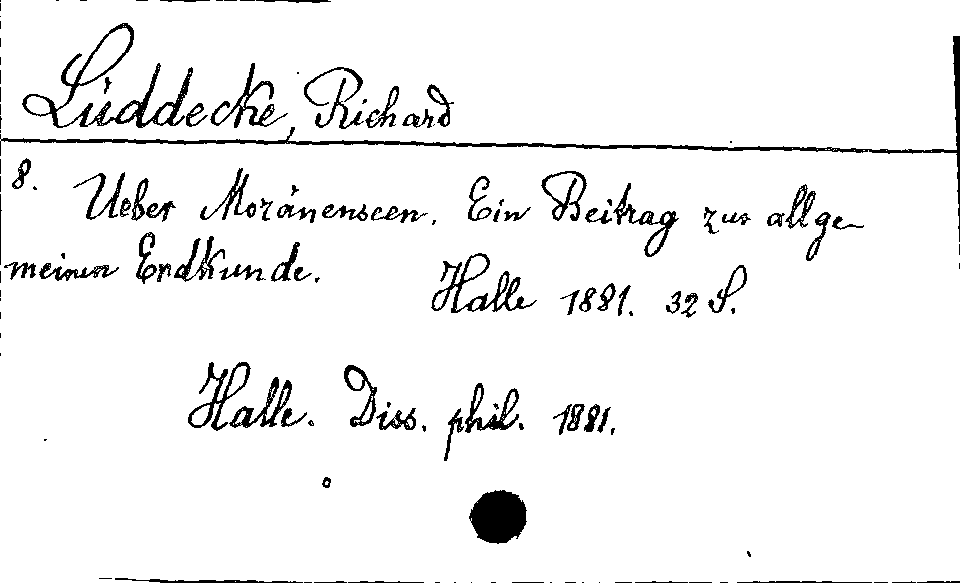 Lüddecke, Richard
8. Ueber Moränenseen. Ein Beitrag zur allge-
meinen Erdkunde.
Halle 1881. 32 S.
Halle. Diss. phil. 1881.